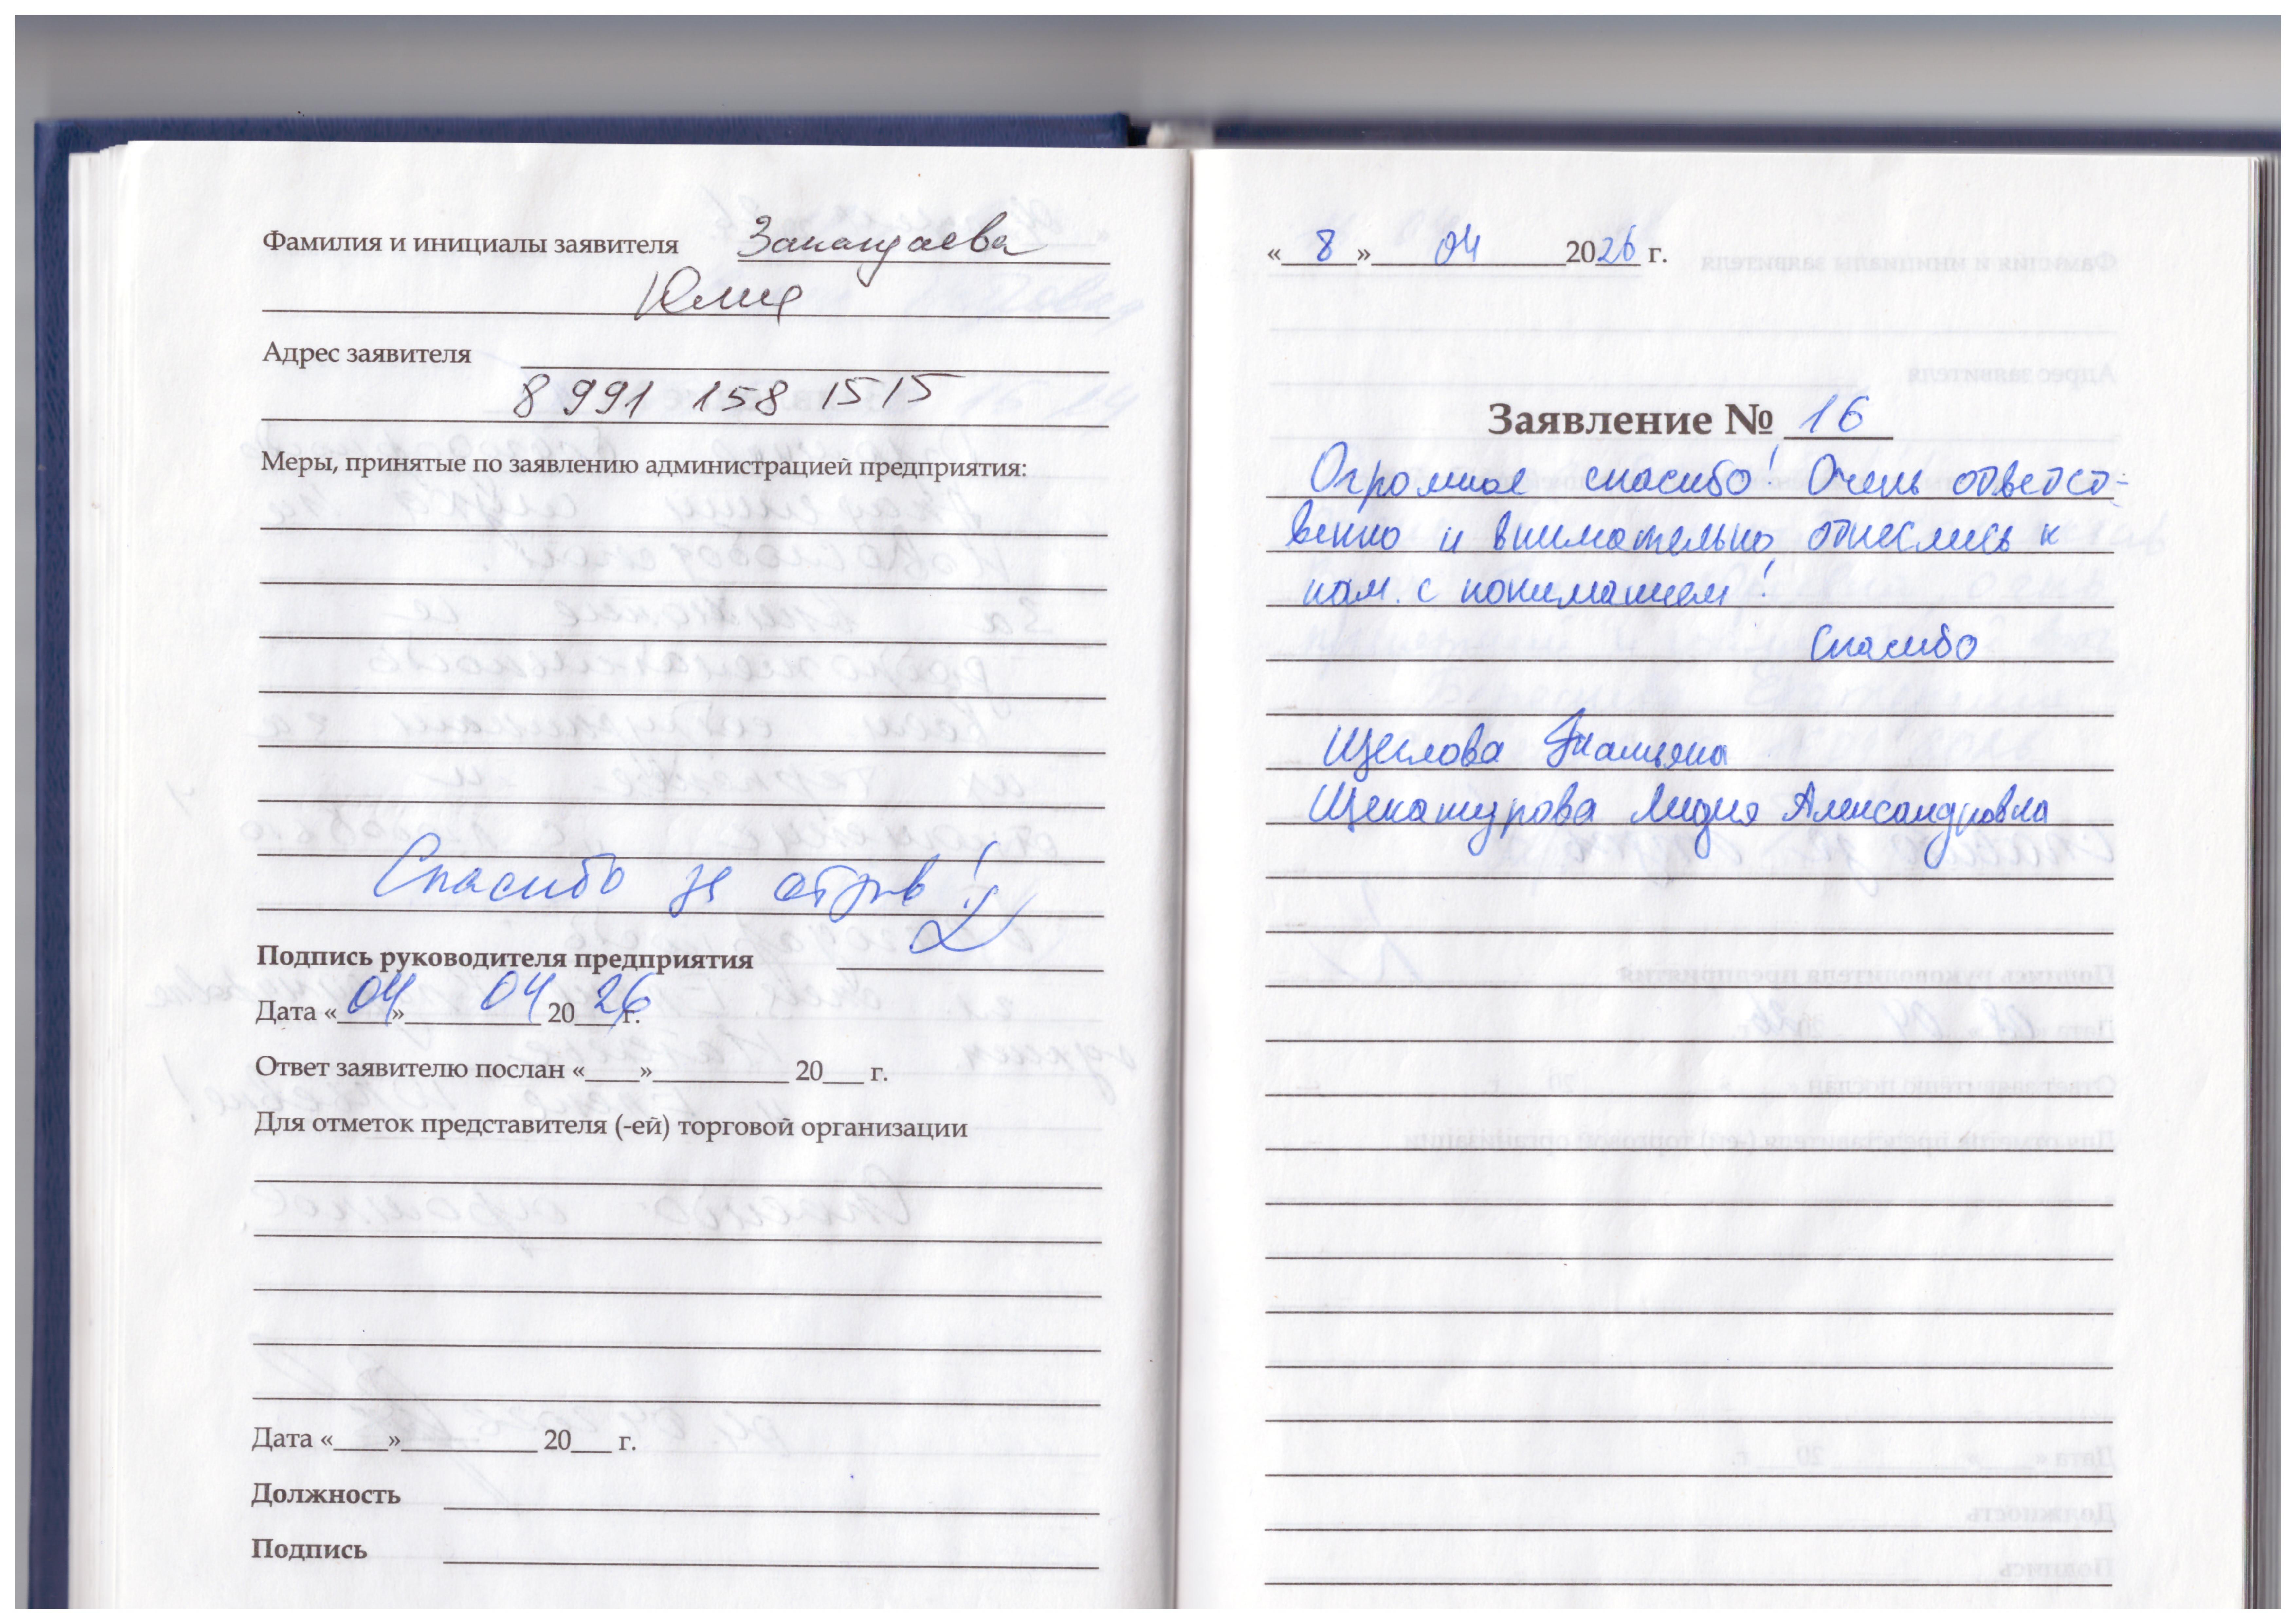 Фамилия и инициалы заявителя
Юлия
Адрес заявителя
8 991 158 15 15
Меры, принятые по заявлению администрацией предприятия:
Спасибо за отзыв!
Подпись руководителя предприятия
Дата «04» 04 2026 г.
Ответ заявителю послан «____»__________ 20___ г.
Для отметок представителя (-ей) торговой организации
Дата «____»__________ 20___ г.
Должность
Подпись
« 8 » 04 2026 г.
Заявление № 16
Огромное спасибо! Очень ответст-
венно и внимательно отнеслись к
нам. с пониманием!
Спасибо
Щеглова Татьяна
Щекатурова Лидия Александровна